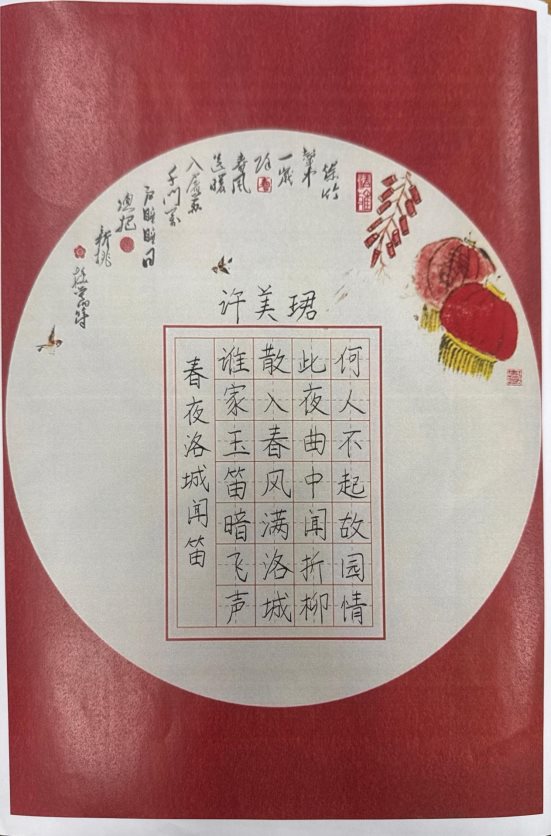 爆竹
一岁
除
春风
送暖
入屠苏
千门万
户曈曈日
总把
新桃
许美珺
春夜洛城闻笛
谁家玉笛暗飞声
散入春风满洛城
此夜曲中闻折柳
何人不起故园情